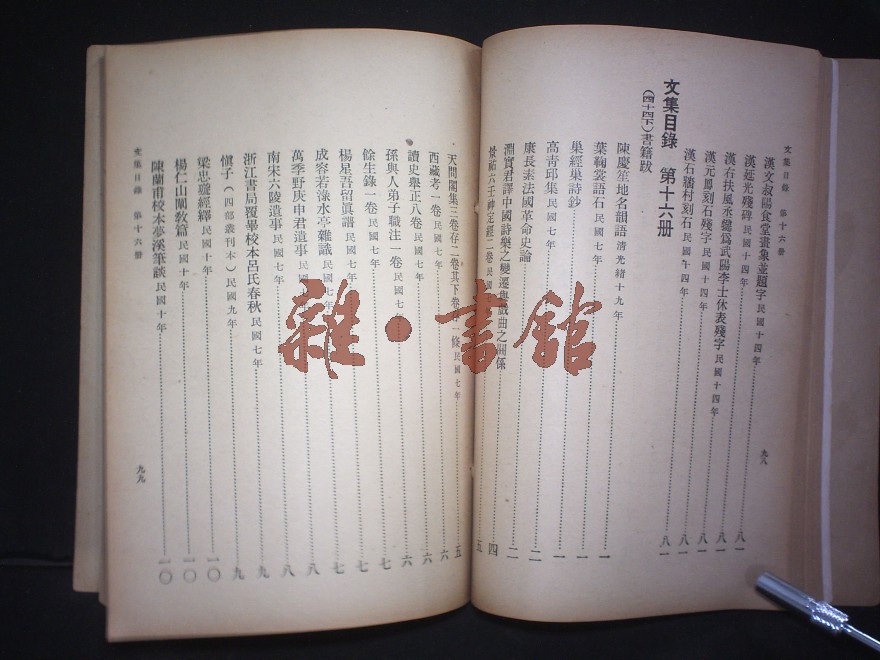 文集目錄 第十六册
漢文叔陽食堂畫象並題字民國十四年
漢延光殘碑民國十四年 八一
漢右扶風丞犍爲武陽李士休表殘字民國十四年 八一
漢元鳳刻石殘字民國十四年 八一
漢石牆村刻石民國十四年 八一
九八
文集目錄 第十六册
(四十四下)書籍跋
陳慶笙地名韻語清光緒十九年 一
葉鞠裳語石民國七年 一
巢經巢詩鈔 一
高青邱集民國七年 一
康長素法國革命史論 二
淵實君譯中國詩樂之變遷與戲曲之關係 二
景祐六壬神定經二卷民國 四
天問閣集三卷存二卷其下卷 一條民國七年 五
西藏考一卷民國七年 五
讀史舉正八卷民國七年 六
孫與人弟子職注一卷民國七年 六
餘生錄一卷民國七年 六
楊星吾留眞譜民國七年 七
成容若淥水亭雜識民國七年 七
萬季野庚申君遺事民國七年 七
南宋六陵遺事民國七年 八
浙江書局覆畢校本呂氏春秋民國七年 八
愼子(四部叢刊本)民國九年 九
梁忠璇經繹民國十年 九
楊仁山闡教篇民國十年 一〇
陳蘭甫校本夢溪筆談民國十年 一〇
文集目錄 第十六册
九九
雜·書館